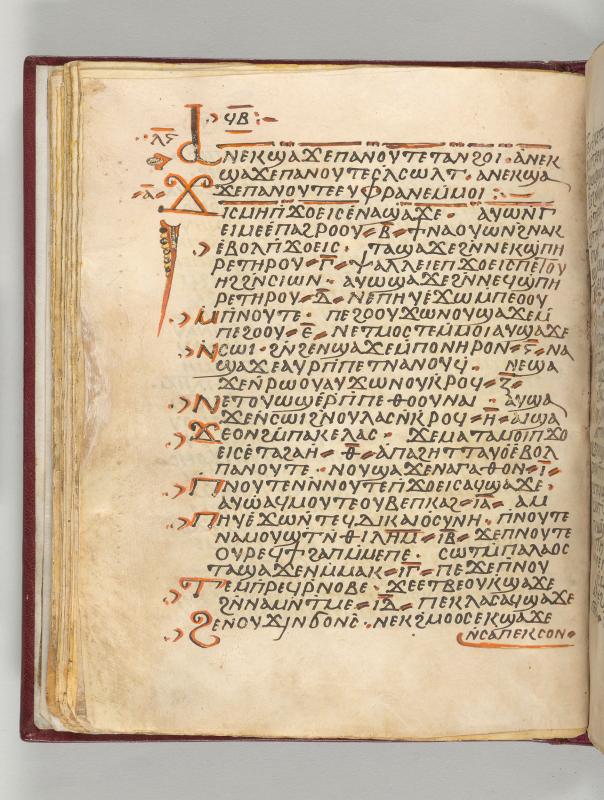 ϥⲃ
ⲗⲋ
ⲁⲛⲉⲕϣⲁϫⲉⲡⲁⲛⲟⲩⲧⲉⲧⲁⲛϩⲟⲓ · ⲁⲛⲉⲕ
ϣⲁϫⲉⲡⲁⲛⲟⲩⲧⲉⲥⲗⲥⲱⲗⲧ · ⲁⲛⲉⲕϣⲁ
ⲁ ϫⲉⲡⲁⲛⲟⲩⲧⲉⲉⲩⲫⲣⲁⲛⲉⲙⲙⲟⲓ :
ϫⲓⲥⲙⲏⲡϫⲟⲉⲓⲥⲉⲛⲁϣⲁϫⲉ · ⲁⲩⲱⲛⲅ
ⲉⲓⲙⲉⲉⲡⲁϩⲣⲟⲟⲩ ⲃ ϯⲛⲁⲟⲩⲱⲛϩⲛⲁⲕ
ⲉⲃⲟⲗⲡϫⲟⲉⲓⲥ · ⲧⲁϣⲁϫⲉϩⲛⲛⲉⲕϣⲡⲏ
ⲣⲉⲧⲏⲣⲟⲩ ⲅ ⲯⲁⲗⲗⲉⲓⲉⲡϫⲟⲉⲓⲥⲡⲉⲧⲟⲩ
ⲏϩϩⲛⲥⲓⲱⲛ · ⲁⲩⲱϣⲁϫⲉϩⲛⲛⲉϥϣⲡⲏ
ⲣⲉⲧⲏⲣⲟⲩ ⲇ ⲛⲉⲡⲏⲩⲉϫⲱⲙⲡⲉⲟⲟⲩ
ⲙⲡⲛⲟⲩⲧⲉ · ⲡⲉϩⲟⲟⲩϫⲱⲛⲟⲩϣⲁϫⲉⲙ
ⲡⲉϩⲟⲟⲩ ⲉ ⲛⲉⲧⲙⲟⲥⲧⲉⲙⲙⲟⲓⲁⲩϣⲁϫⲉ
ⲛⲥⲱⲓ · ϩⲛϩⲉⲛϣⲁϫⲉⲙⲡⲟⲛⲏⲣⲟⲛ ⲋ ⲛⲁ
ϣⲁϫⲉⲁⲩⲣⲡⲡⲉⲧⲛⲁⲛⲟⲩϥ · ⲛⲉϣⲁ
ϫⲉⲛⲣⲱⲟⲩⲁⲩϫⲱⲛⲟⲩⲕⲣⲟϥ ⲍ
ⲛⲉⲧⲟⲩⲱϣⲉⲣⲡⲡⲉⲑⲟⲟⲩⲛⲁⲓ · ⲁⲩϣⲁ
ϫⲉⲛⲥⲱⲓϩⲛⲟⲩⲗⲁⲥⲛⲕⲣⲟϥ ⲏ ⲁⲓϣⲁ
ϫⲉⲟⲛϩⲙⲡⲁⲕⲉⲗⲁⲥ · ϫⲉⲙⲁⲧⲁⲙⲟⲓⲡϫⲟ
ⲉⲓⲥⲉⲧⲁϩⲁⲏ ⲑ ⲁⲡⲁϩⲏⲧⲧⲁⲩⲟⲉⲃⲟⲗ
ⲡⲁⲛⲟⲩⲧⲉ · ⲛⲟⲩϣⲁϫⲉⲛⲁⲅⲁⲑⲟⲛ ⲓ
ⲡⲛⲟⲩⲧⲉⲛⲛⲟⲩⲧⲉⲡϫⲟⲉⲓⲥⲁϥϣⲁϫⲉ ·
ⲁⲩⲱⲁϥⲙⲟⲩⲧⲉⲟⲩⲃⲉⲡⲕⲁϩ ⲓⲁ ⲁⲙ
ⲡⲏⲩⲉϫⲱⲛⲧⲉϥⲇⲓⲕⲁⲓⲟⲥⲩⲛⲏ · ⲡⲛⲟⲩⲧⲉ
ⲛⲁⲙⲟⲩϣⲧⲛⲑⲓⲗⲏⲙ ⲓⲃ ϫⲉⲡⲛⲟⲩⲧⲉ
ⲟⲩⲣⲉϥϯϩⲁⲡⲙⲙⲉⲡⲉ · ⲥⲱⲧⲙⲡⲁⲗⲁⲟⲥ
ⲧⲁϣⲁϫⲉⲛⲙⲙⲁⲕ ⲓⲅ ⲡⲉϫⲉⲡⲛⲟⲩ
ⲧⲉⲙⲡⲣⲉϥⲣⲛⲟⲃⲉ · ϫⲉⲉⲧⲃⲉⲟⲩⲕϣⲁϫⲉ
ϩⲛⲛⲁⲙⲛⲧⲙⲉ ⲓⲇ ⲡⲉⲕⲗⲁⲥⲁϥϣⲁϫⲉ
ϩⲉⲛⲟⲩϫⲓⲛϭⲟⲛⲥ · ⲛⲉⲕϩⲙⲟⲟⲥⲉⲕϣⲁϫⲉ
ⲛⲥⲁⲡⲉⲕⲥⲟⲛ